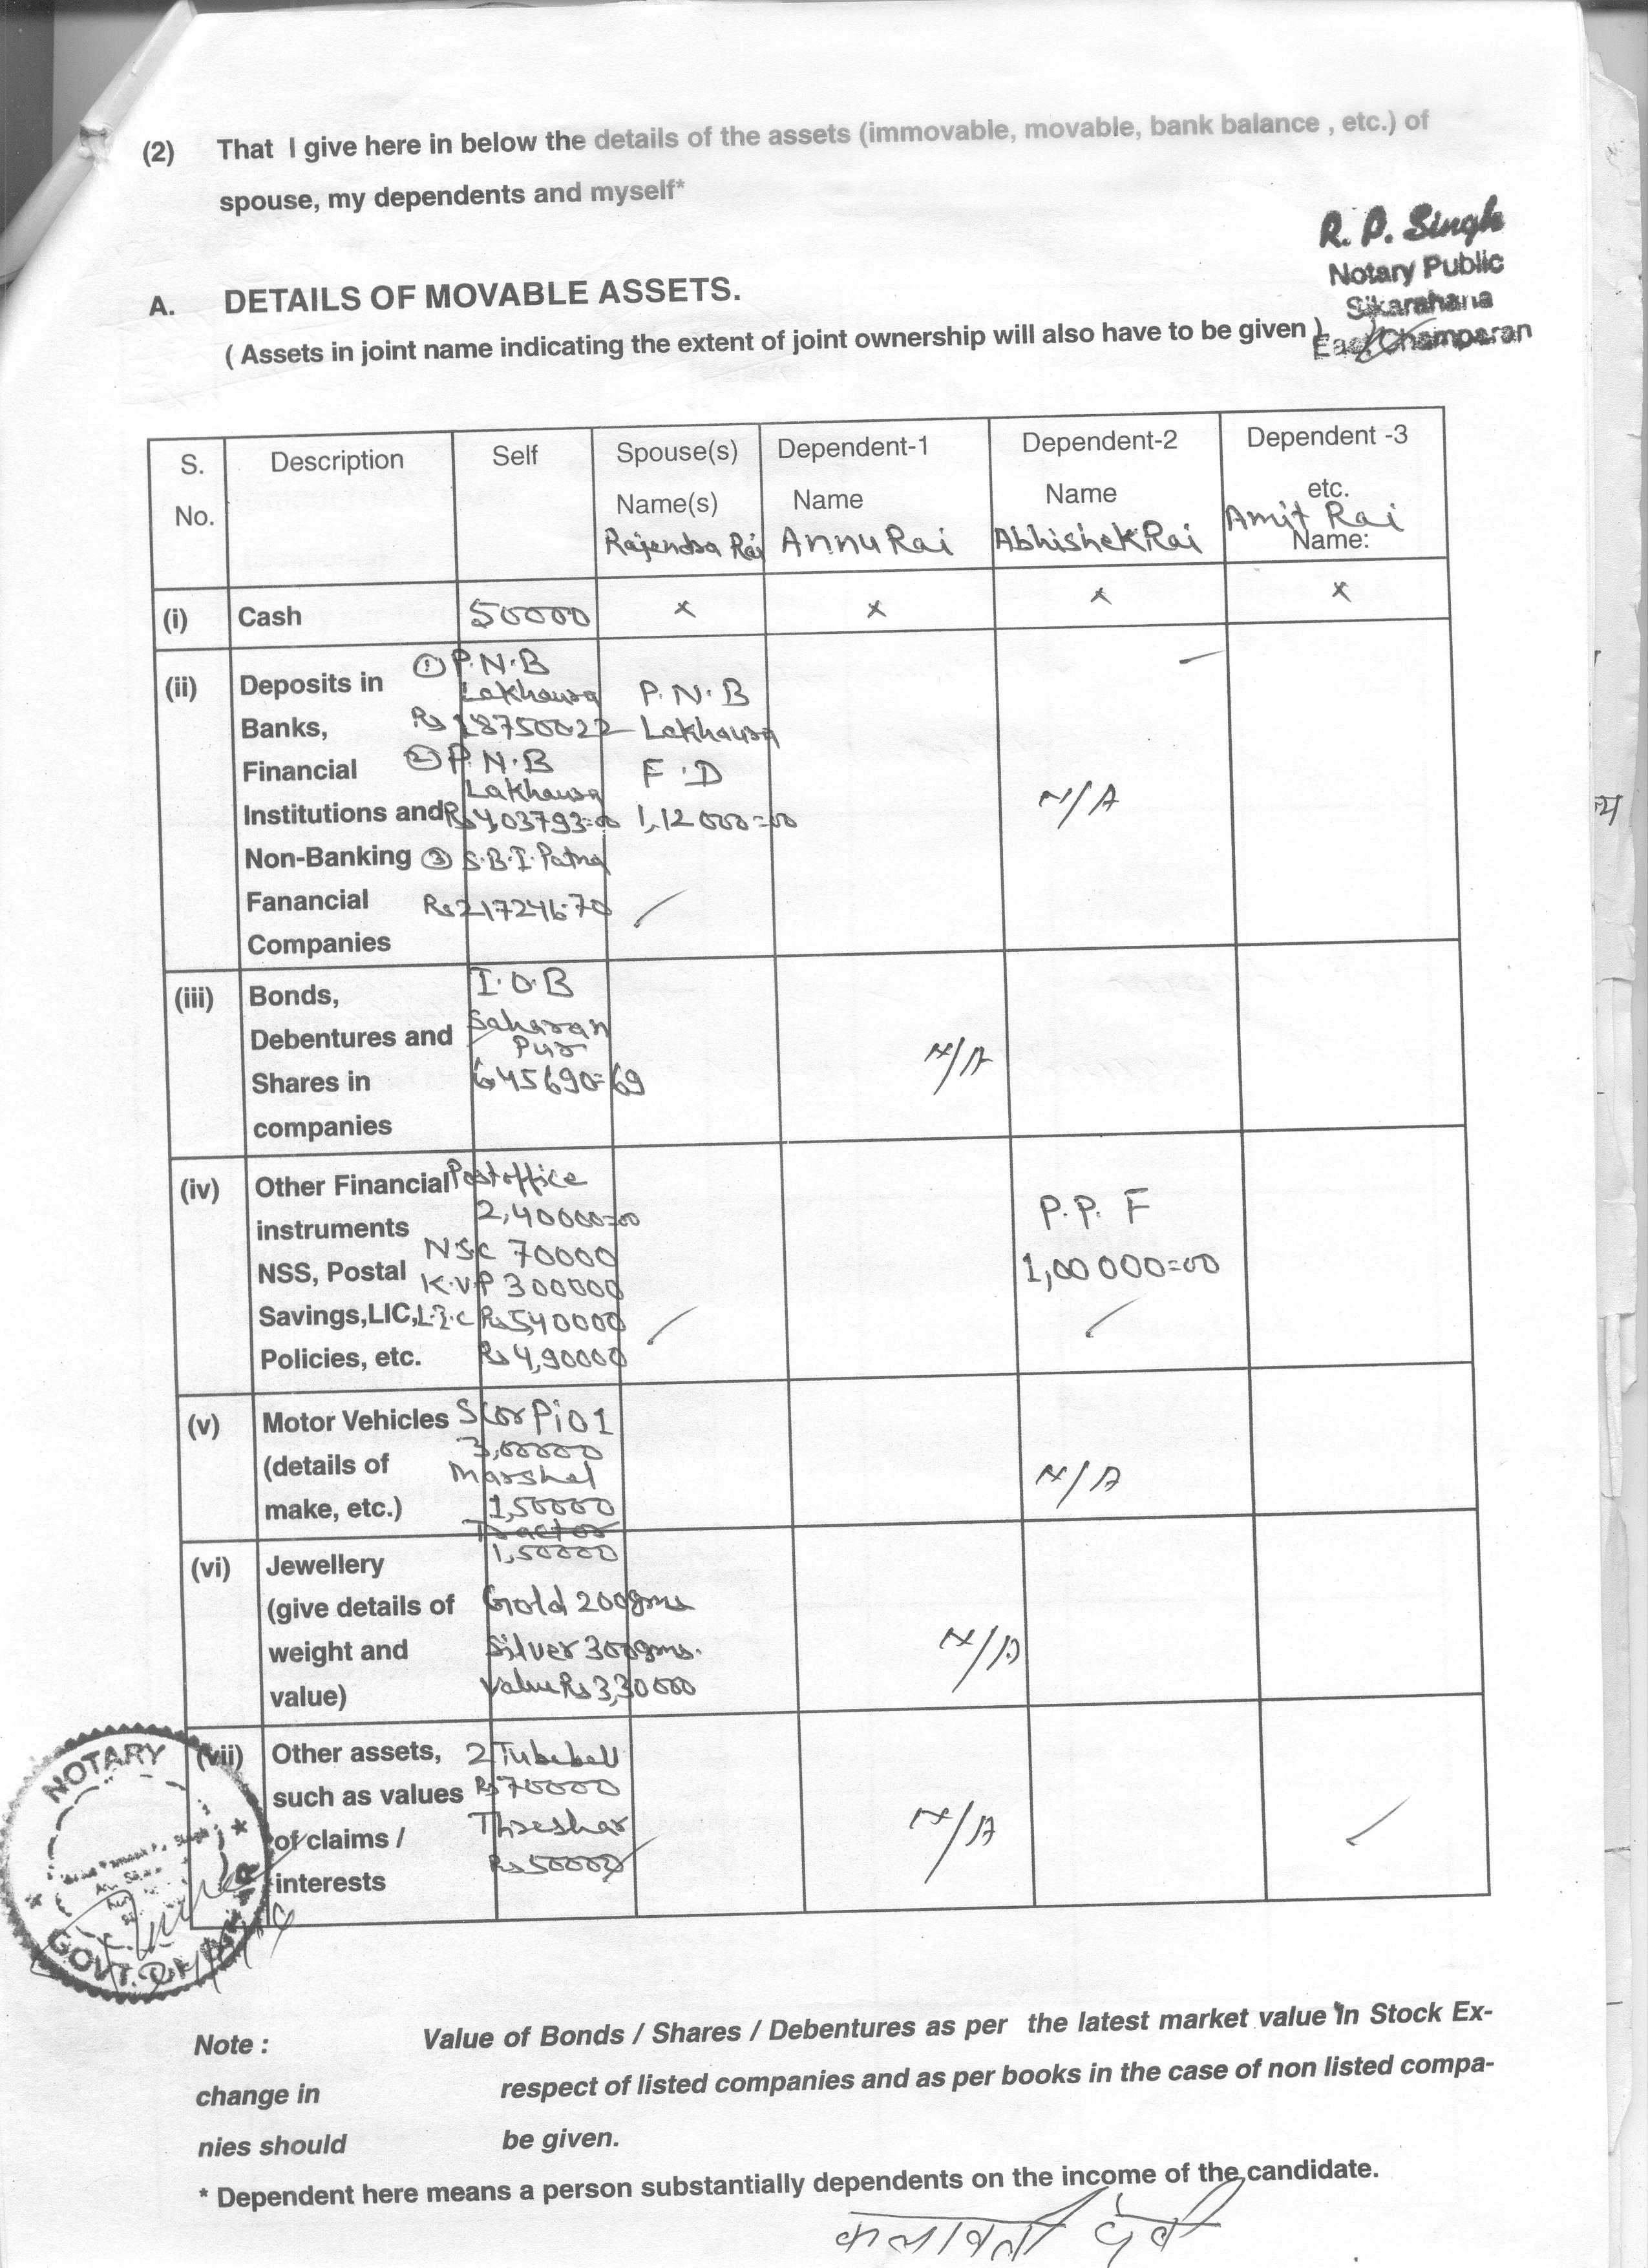 (2) That I give here in below the details of the assets (immovable, movable, bank balance , etc.) of
spouse, my dependents and myself*
R. P. Singh
Notary Public
Sikarahana
East Champaran
A. DETAILS OF MOVABLE ASSETS.
( Assets in joint name indicating the extent of joint ownership will also have to be given )
S. No. Description Self Spouse(s) Name(s) Rajendra Rai Dependent-1 Name Annu Rai Dependent-2 Name Abhishek Rai Dependent -3 etc. Amit Rai Name:
(i) Cash 50000 x x x x
(ii) Deposits in
Banks,
Financial
Institutions and
Non-Banking
Fanancial
Companies
① P.N.B
Lakhaura
Rs 187500.22
② P.N.B
Lakhaura
Rs 4,03793=00
③ S.B.I. Patna
Rs 217246.70
P.N.B
Lakhaura
F.D
1,12000=00
N/A
(iii) Bonds,
Debentures and
Shares in
companies
I.O.B
Saharan
Pur
6,45690=69
N/A
(iv) Other Financial
instruments
NSS, Postal
Savings,LIC,
Policies, etc.
Postoffice
2,40000=00
N.S.C 70000
K.V.P 300000
L.I.C Rs 5,40000
Rs 4,90000
P.P.F
1,00000=00
(v) Motor Vehicles
(details of
make, etc.)
Scorpio 1
3,00000
Marshel
1,50000
Tractor
1,50000
N/A
(vi) Jewellery
(give details of
weight and
value)
Gold 200gms
Silver 300gms.
Value Rs 3,30000
N/A
(vii) Other assets,
such as values
of claims /
interests
2 Tubebell
Rs 70000
Threshar
Rs 50000
N/A
NOTARY
GOVT. OF BIHAR
Note : Value of Bonds / Shares / Debentures as per the latest market value in Stock Ex-
change in respect of listed companies and as per books in the case of non listed compa-
nies should be given.
* Dependent here means a person substantially dependents on the income of the candidate.
कलावती देवी